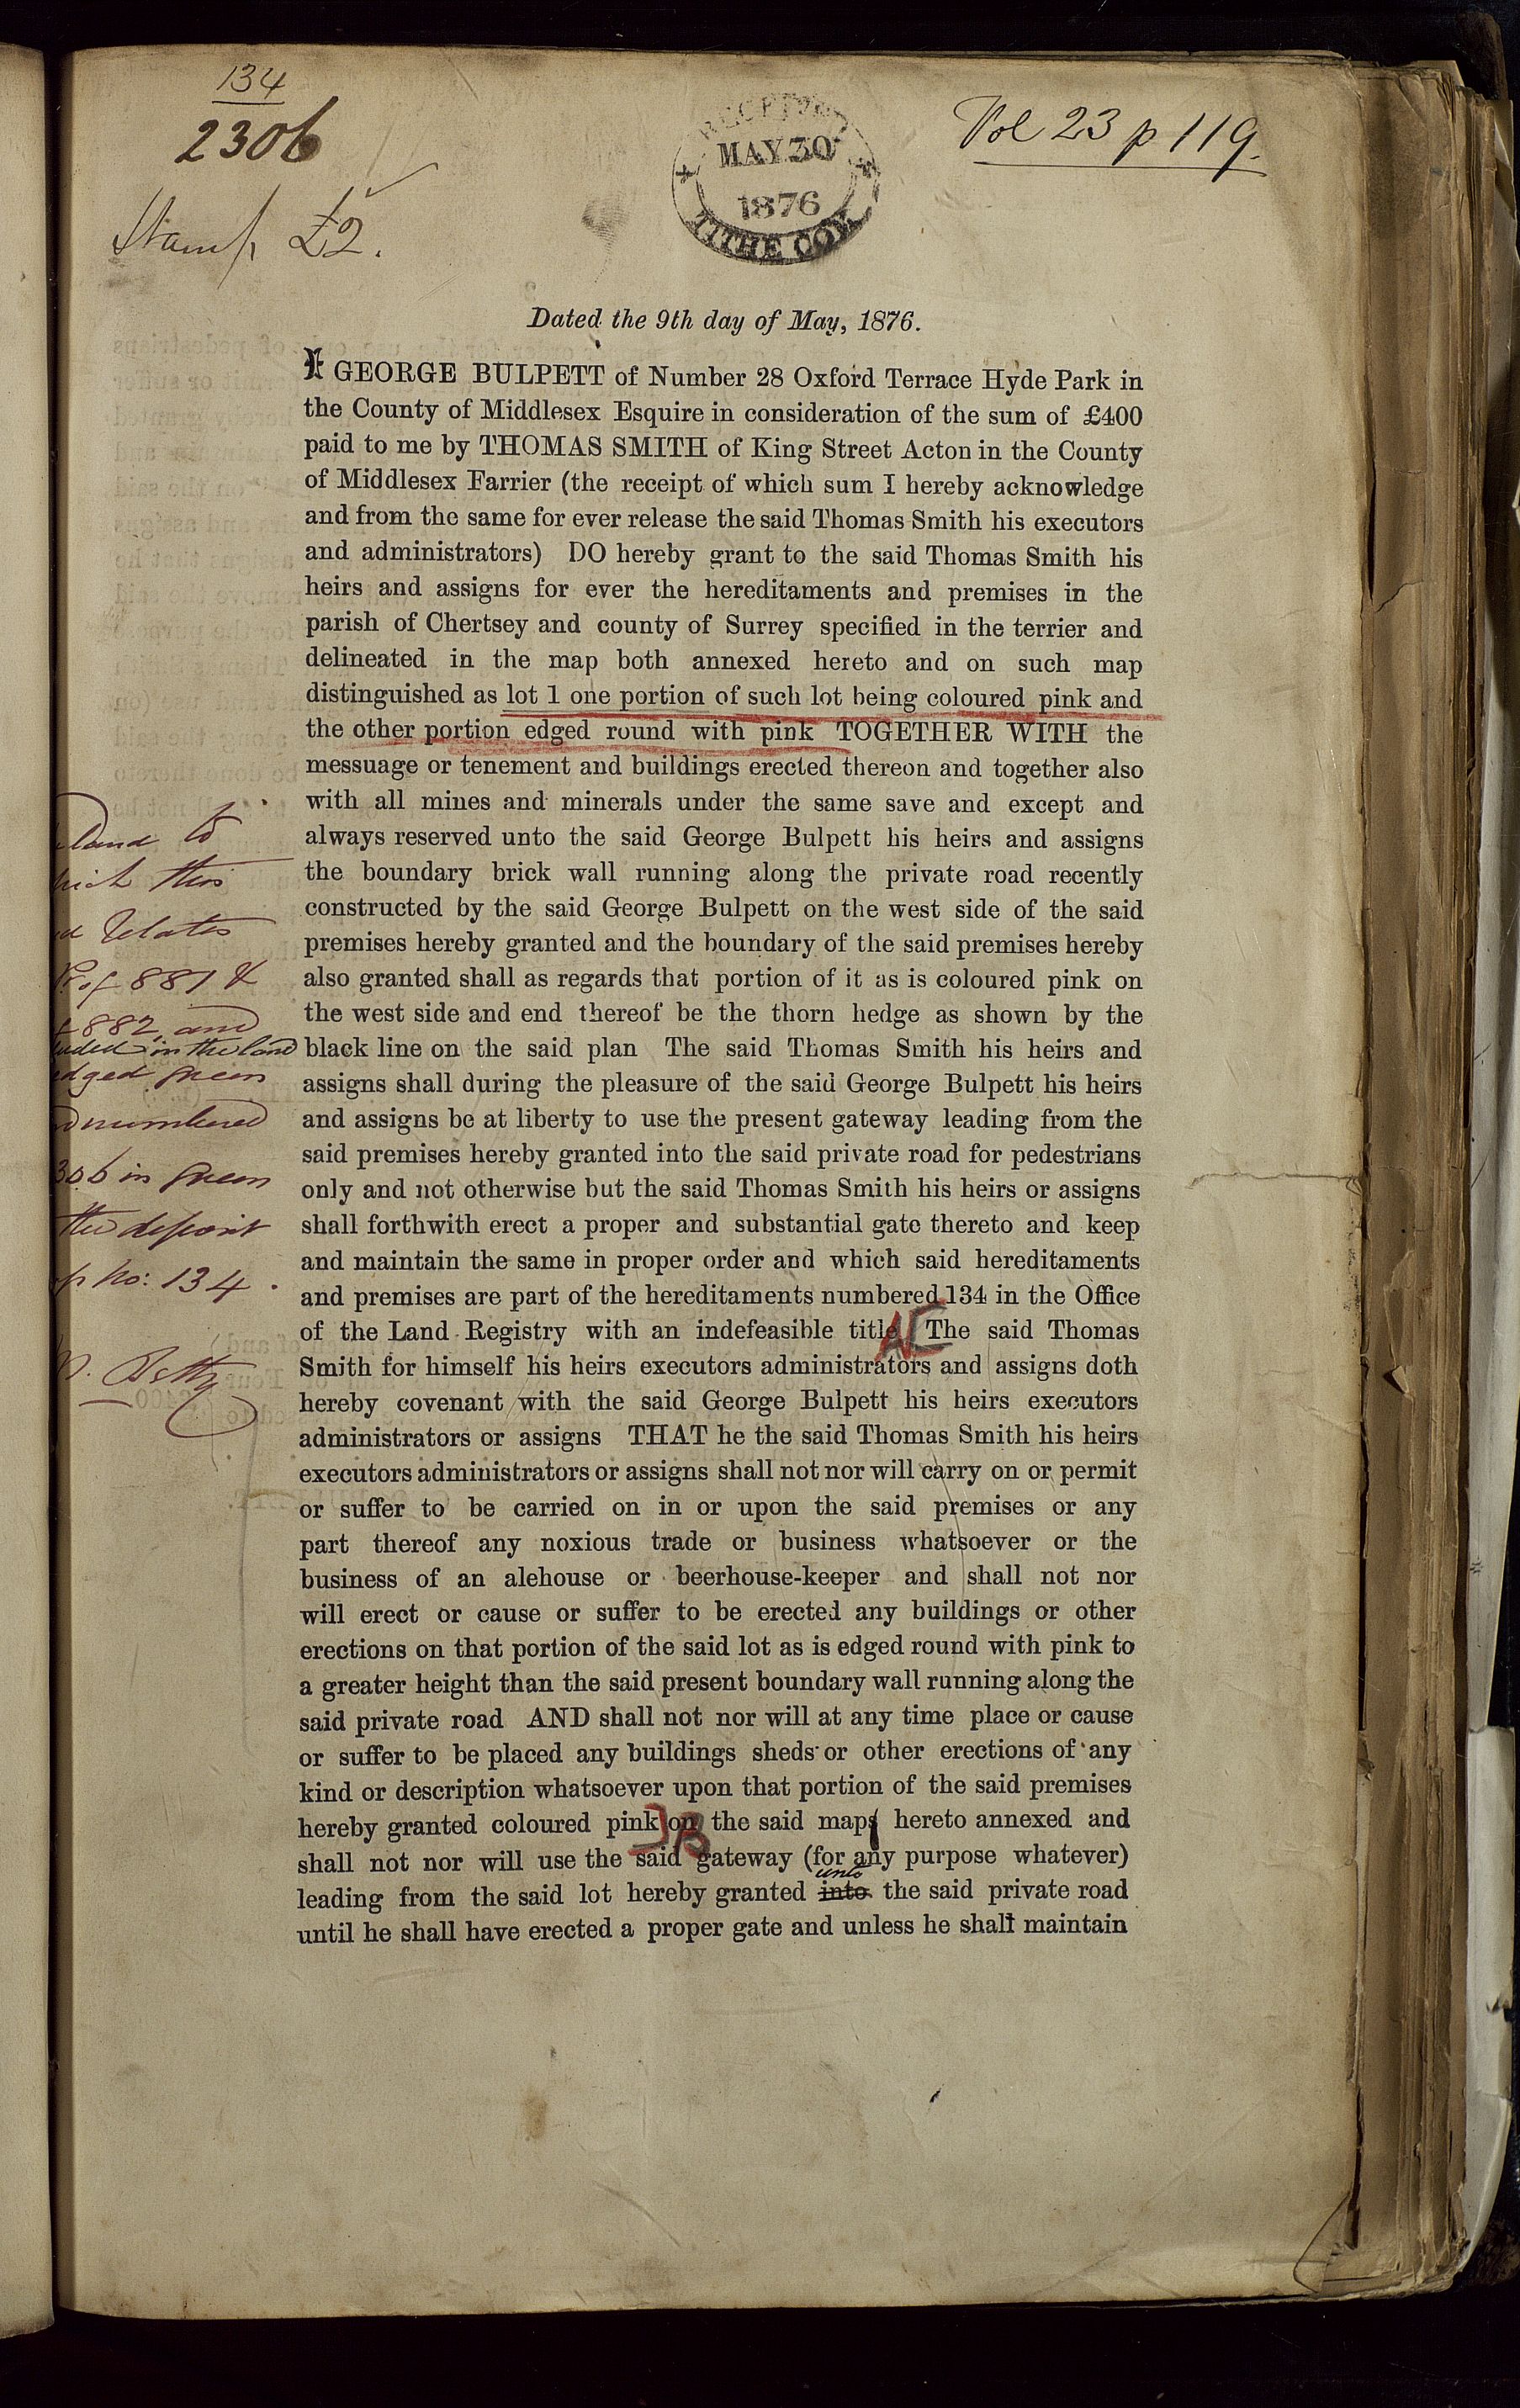 134
2306
Stamp £2.
RECEIVED
MAY 30
1876
TITHE COM
Vol 23 p 119.
Dated the 9th day of May, 1876.
I GEORGE BULPETT of Number 28 Oxford Terrace Hyde Park in
the County of Middlesex Esquire in consideration of the sum of £400
paid to me by THOMAS SMITH of King Street Acton in the County
of Middlesex Farrier (the receipt of which sum I hereby acknowledge
and from the same for ever release the said Thomas Smith his executors
and administrators) DO hereby grant to the said Thomas Smith his
heirs and assigns for ever the hereditaments and premises in the
parish of Chertsey and county of Surrey specified in the terrier and
delineated in the map both annexed hereto and on such map
distinguished as lot 1 one portion of such lot being coloured pink and
the other portion edged round with pink TOGETHER WITH the
messuage or tenement and buildings erected thereon and together also
with all mines and minerals under the same save and except and
always reserved unto the said George Bulpett his heirs and assigns
the boundary brick wall running along the private road recently
constructed by the said George Bulpett on the west side of the said
premises hereby granted and the boundary of the said premises hereby
also granted shall as regards that portion of it as is coloured pink on
the west side and end thereof be the thorn hedge as shown by the
black line on the said plan The said Thomas Smith his heirs and
assigns shall during the pleasure of the said George Bulpett his heirs
and assigns be at liberty to use the present gateway leading from the
said premises hereby granted into the said private road for pedestrians
only and not otherwise but the said Thomas Smith his heirs or assigns
shall forthwith erect a proper and substantial gate thereto and keep
and maintain the same in proper order and which said hereditaments
and premises are part of the hereditaments numbered 134 in the Office
of the Land Registry with an indefeasible title A[ The said Thomas
Smith for himself his heirs executors administrators and assigns doth
hereby covenant with the said George Bulpett his heirs executors
administrators or assigns THAT he the said Thomas Smith his heirs
executors administrators or assigns shall not nor will carry on or permit
or suffer to be carried on in or upon the said premises or any
part thereof any noxious trade or business whatsoever or the
business of an alehouse or beerhouse-keeper and shall not nor
will erect or cause or suffer to be erected any buildings or other
erections on that portion of the said lot as is edged round with pink to
a greater height than the said present boundary wall running along the
said private road AND shall not nor will at any time place or cause
or suffer to be placed any buildings sheds or other erections of any
kind or description whatsoever upon that portion of the said premises
hereby granted coloured pink ]B on the said map hereto annexed and
shall not nor will use the said gateway (for any purpose whatever)
unto
leading from the said lot hereby granted into the said private road
until he shall have erected a proper gate and unless he shall maintain
land to
this
relates
881 &
882 and
in the land
edged green
numbered
306 in green
the deposit
No: 134.
Betty